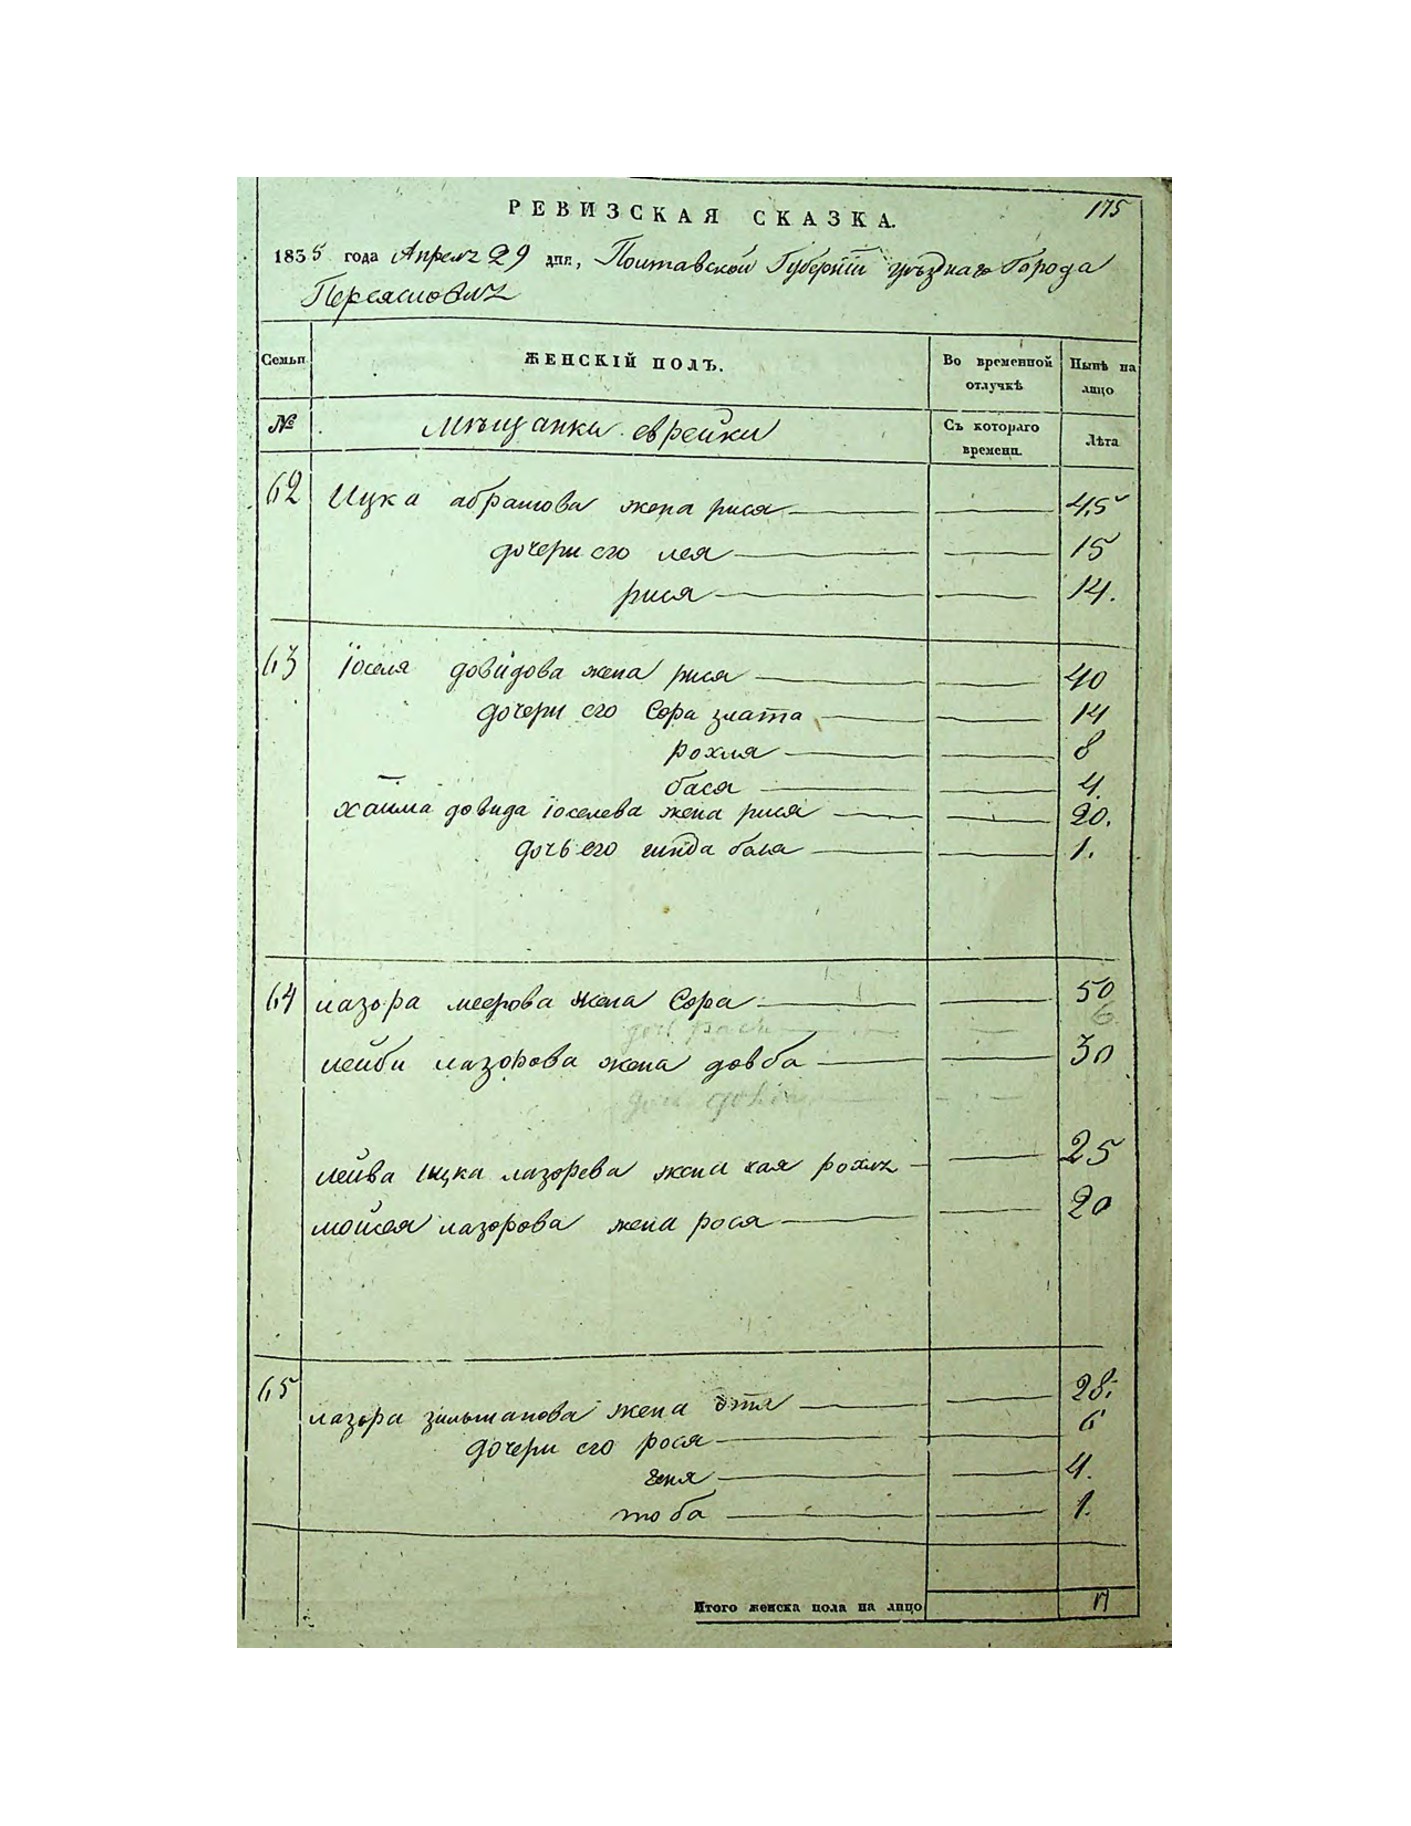 РЕВИЗСКАЯ СКАЗКА. 175
1835 года Апреля 29 дня, Полтавской Губерніи уѣзднаго Города
Переяславля
Семьи ЖЕНСКІЙ ПОЛЪ. Во временной отлучкѣ Нынѣ на лицо
№ Мѣщанки евреики Съ котораго времени. Лѣта
62 Ицка абрамова жена рися 45
дочери его лея 15
рися 14.
63 Іоселя довидова жена рися 40
дочери его Сора злата 14
рохля 8
бася 4.
хаима довида іоселева жена рися 20.
дочь его гинда баса 1.
64 лазора меерова жена Сора 50
6
лейби лазорова жена довба 30
лейва ицка лазорева жена хая рохля 25
мойсея лазорова жена рося 20
65 лазора зильманова жена этя 28.
дочери его рося 6
геня 4.
тоба 1.
Итого женска пола на лицо 17